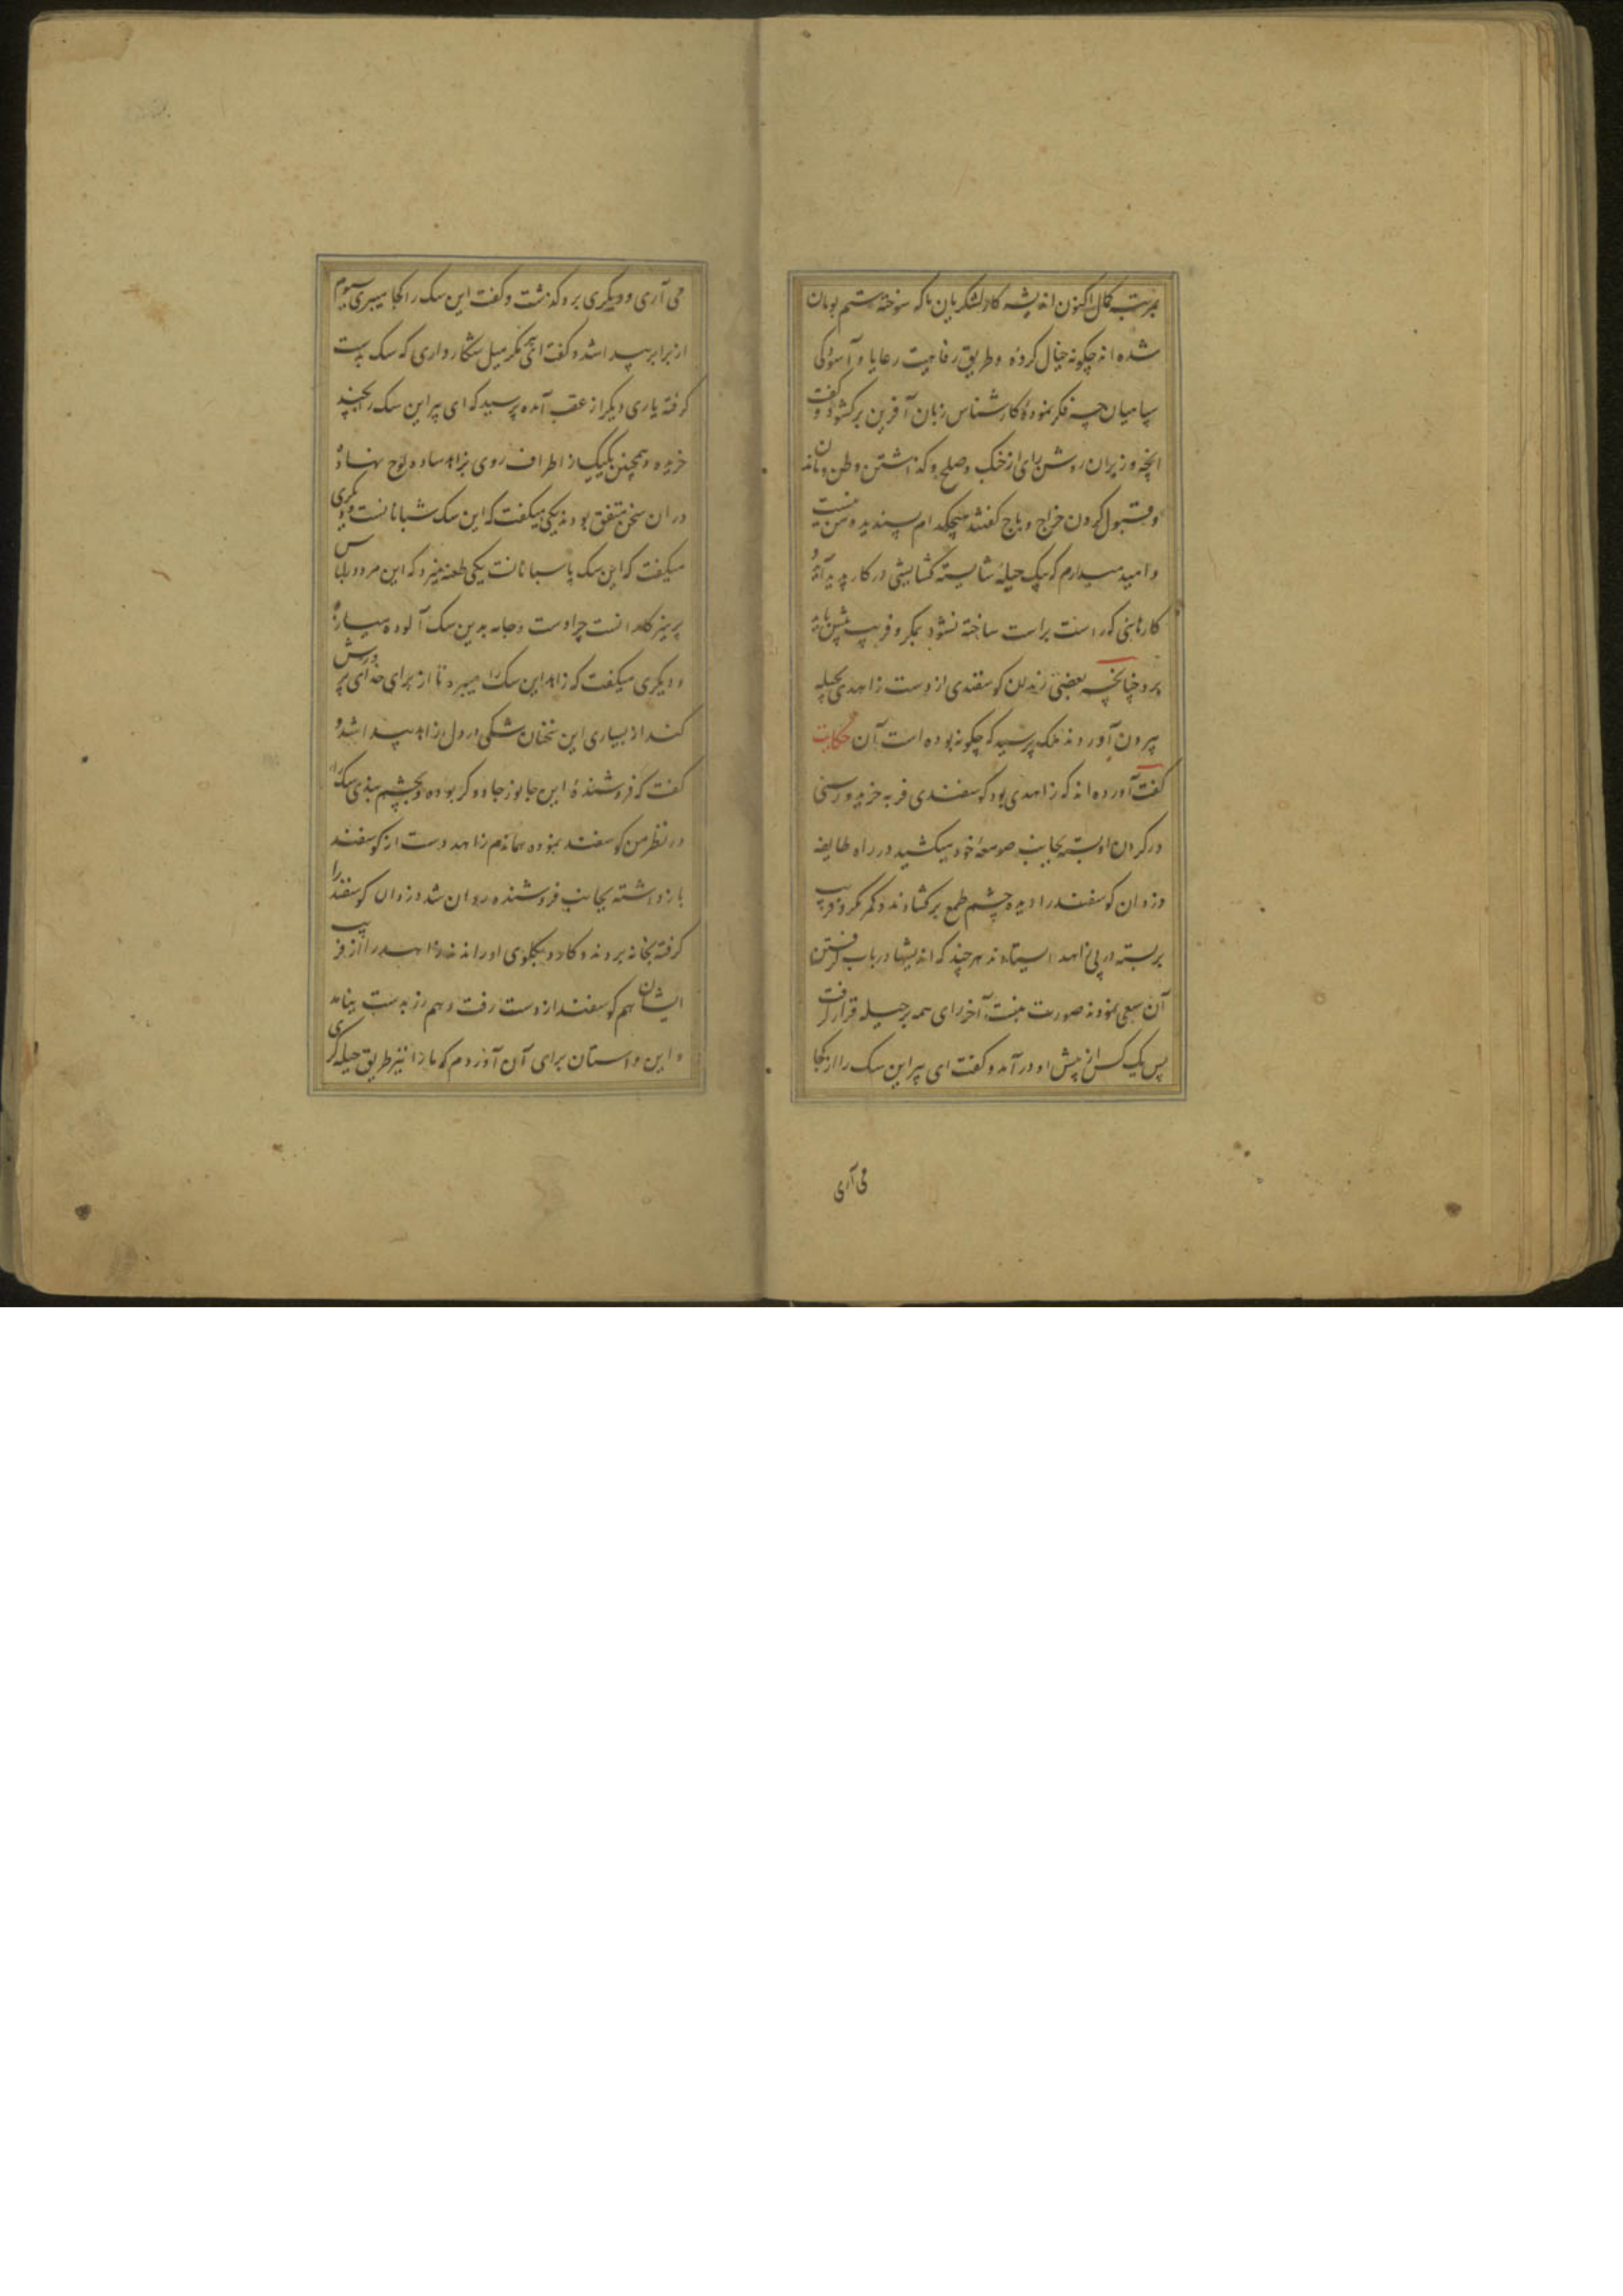 بمرتبه کمال اکنون اندیشه کار لشکریان ما که سوخته ستم بومان
شده اند چگونه خیال کرده و طریق رفاهیت رعایا و آسودگی
سپاهیان چه فکر نموده کارشناس زبان آفرین برکشود و گفت
آنچه وزیران روشن رای از جنگ و صلح و گذاشتن وطن و مان
و قبول کردن خراج و باج گفتند هیچکدام پسندیده من نیست
و امید میدارم که بیک حیله شایسته گشایشی در کار پدید آید و
کارهائی که راست براست ساخته نشود بمکر و فریب پیش
برد چنانچه بعضی زندان گوسفندی از دست زاهدی بحیله
بیرون آوردند ملک پرسید که چگونه بوده است آن حکایت
گفت آورده اند که زاهدی بود گوسفندی فربه خرید و رسنی
در گردن او بسته بجانب صومعه خود میکشید در راه طایفه
دزدان گوسفند را دیده چشم طمع برکشادند و کمر مکر و فریب
بربسته در پی زاهد ایستادند هر چند که اندیشها در باب گرفتن
آن سعی نمودند صورت نبست آخر رای همه بر حیله قرار گرفت
پس یک کس از پیش او در آمد و گفت ای پیر این سک را از کجا
می آری
می آری و دیگری برو گذشت و گفت این سک را کجا میبری سیوم
از برابر پیدا شد و گفت ای مگر میل شکار داری که سک بدست
گرفته یاری دیگر از عقب آمده پرسید که ای پیر این سک را بچند
خریده و همچنین یکیک از اطراف روی بزاهد ساده لوح نهاده
در ان سخن متفق بودند یکی میگفت که این سک شبانانست و دیگری
میگفت که این سک پاسبانانست یکی طعنه میزد که این مرد در لباس
پرهیزگارانست چرا دست و جامه بدین سک آلوده میسازد
و دیگری میگفت که زاهد این سک را میبرد تا از برای خدای پرورش
کند از بسیاری این سخنان شکی در دل زاهد پیدا شد و
گفت که فروشنده این جانور جادوگر بوده و بچشم بندی سک را
در نظر من گوسفند نموده هماندم زاهد دست از گوسفند
بازداشته بجانب فروشنده روان شد دزدان گوسفند را
گرفته بخانه بردند و کارد بگلوی او راندند زاهد را از فریب
ایشان هم گوسفند از دست رفت و هم زر بدست نیامد
و این داستان برای آن آوردم که ما را نیز طریق حیله گری